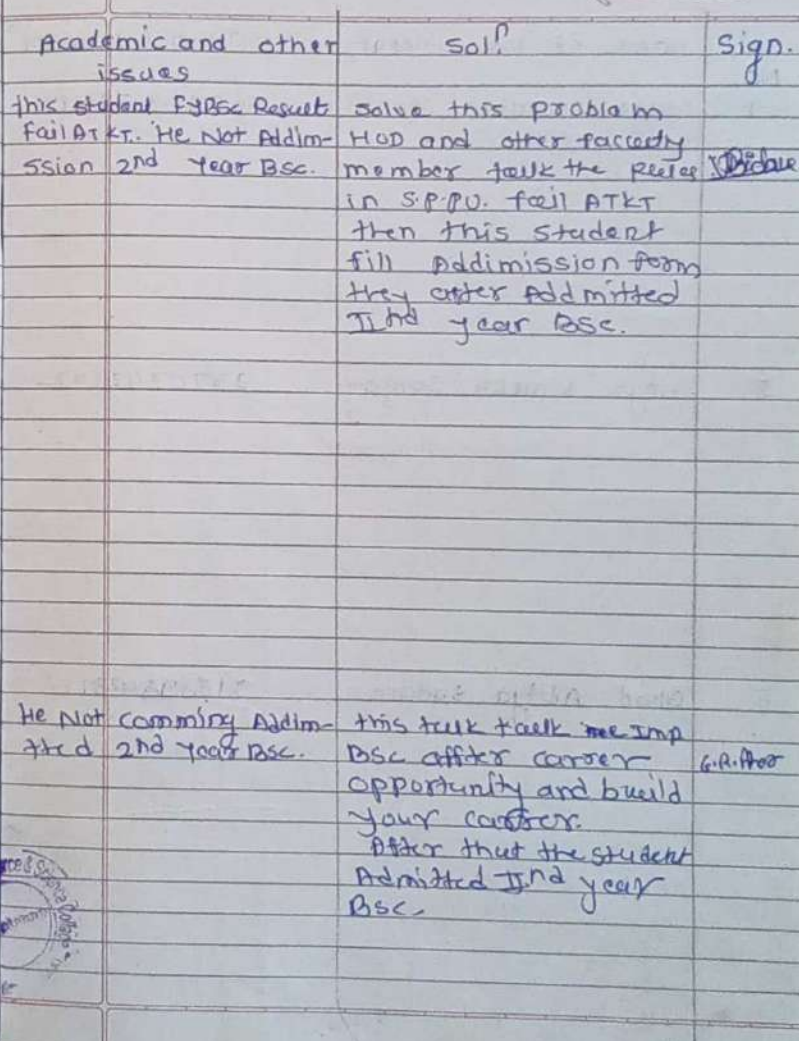 Academic and other issues
Sol?
Sign.
this student FyBSc Result
Fail ATKT. He Not Addim-
ssion 2nd Year BSc.
Solve this problam
HOD and other faccedty
member talk the Reeles
in S.P.PU. fail ATKT
then this student
fill Addimission form
they after Addmitted
IInd year BSc.
He Not Comming Addim-
tted 2nd Year BSc.
this talk talk Imp
BSc affter carrer
opportunity and bueild
your carrer.
After that the student
Admitted IInd year
BSc.